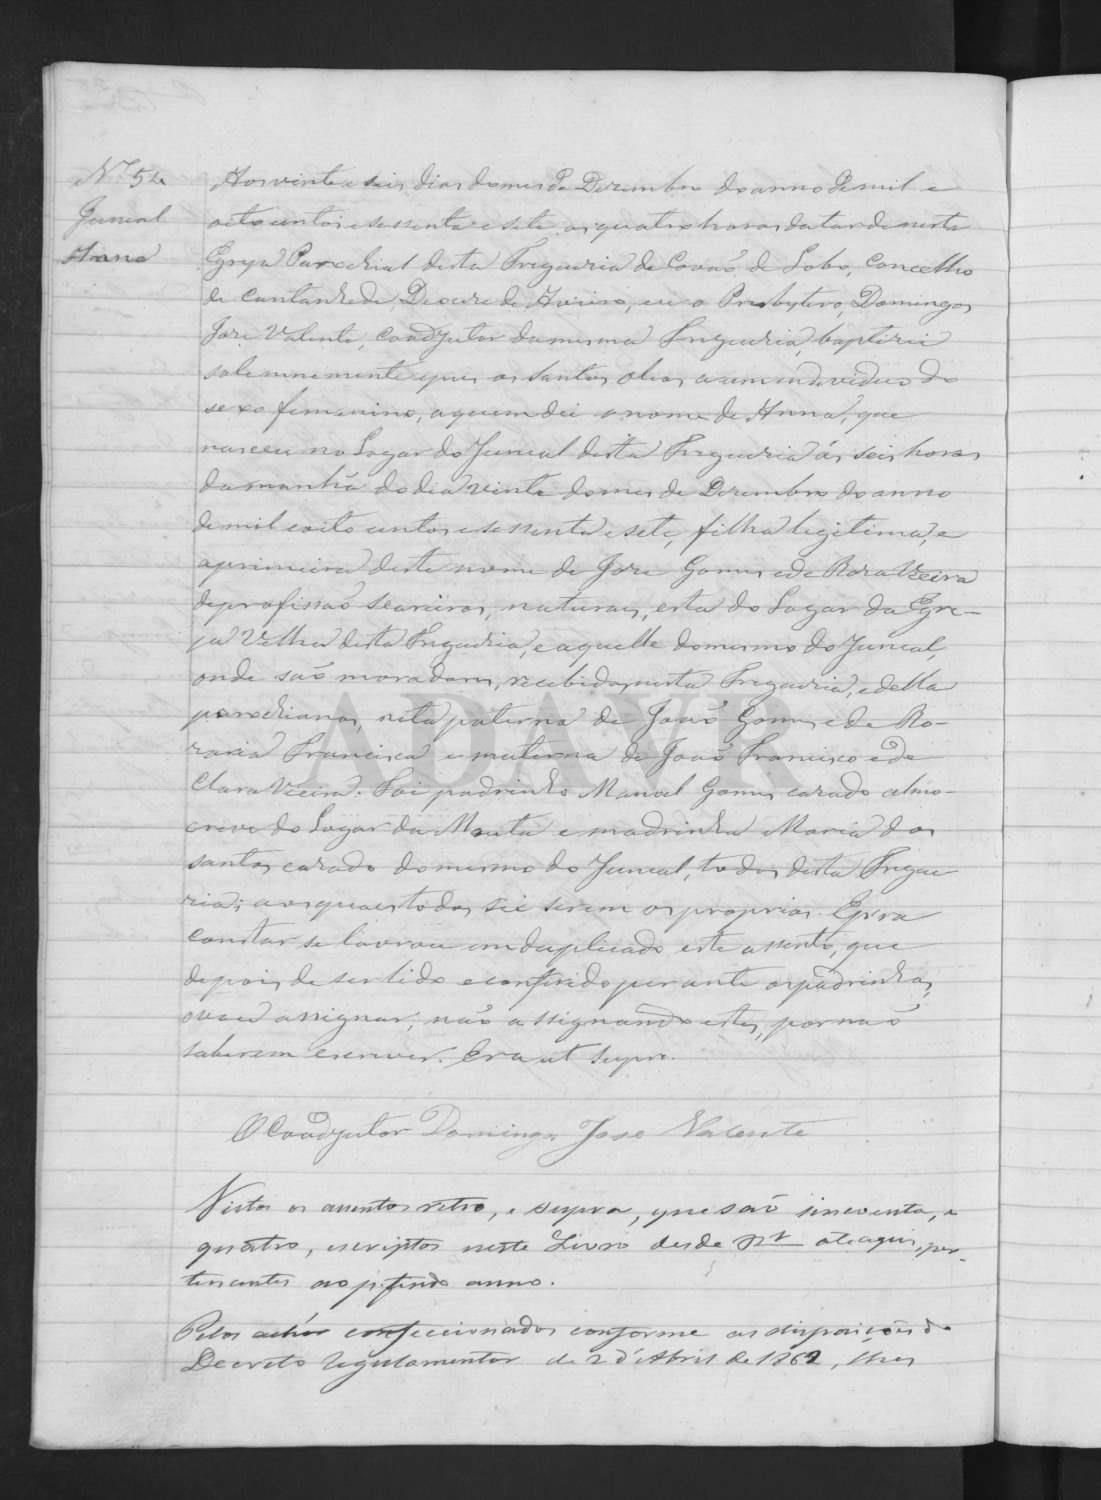 Nº 54
Juncal
Anna
Aos vinte e seis dias do mes de Dezembro do anno de mil e
oito centos e sessenta e sete, as quatro horas da tarde nesta
Egreja Parochial desta Freguezia de Covaõ de Lobo, Concelho
de Cantanhede, Diocese de Aveiro, eu o Presbytero, Domingos
Joze Valente, coadjutor da mesma Freguezia, baptizei
solemnemente e puz os santos oleos a um individuo do
sexo femenino, a quem dei o nome de Anna, que
nasceu no Lugar do Juncal desta Freguezia ás seis horas
da manhã do dia vinte do mes de Dezembro do anno
de mil e oito centos e sessenta e sete, filha legitima, e
a primeira deste nome de Joze Gomes e de Roza Vieira
de profissaõ seareiros, naturaes, esta do Lugar da Egre-
ja Velha desta Freguezia, e aquelle do mesmo do Juncal,
onde saõ moradores, recebidos nesta Freguezia, e della
parochianos, neta paterna de Joaõ Gomes e de Ro-
zaria Francisca e materna de Joaõ Francisco e de
Clara Vieira. Foi padrinho Manoel Gomes cazado almo-
creve do Lugar da Mata e madrinha Maria dos
santos cazada do mesmo do Juncal, todos desta Fregue
zia; aos quaes todos sei serem os proprios. E pra
constar se lavrou em duplicado este assento, que
depois de ser lido e conferido perante os padrinhos,
o vou assignar, naõ assignando estes, por naõ
saberem escrever. Era ut supra.
O Coadjutor Domingos Jose Valente
Vistos os assentos retro, e supra, que saõ sincoenta, e
quatro, escriptos neste Livro desde até aqui, per-
tencentes ao p. findo anno.
Pelos achar confeccionados conforme as disposições do
Decreto regulamentar de 2 d'Abril de 1862, lhes